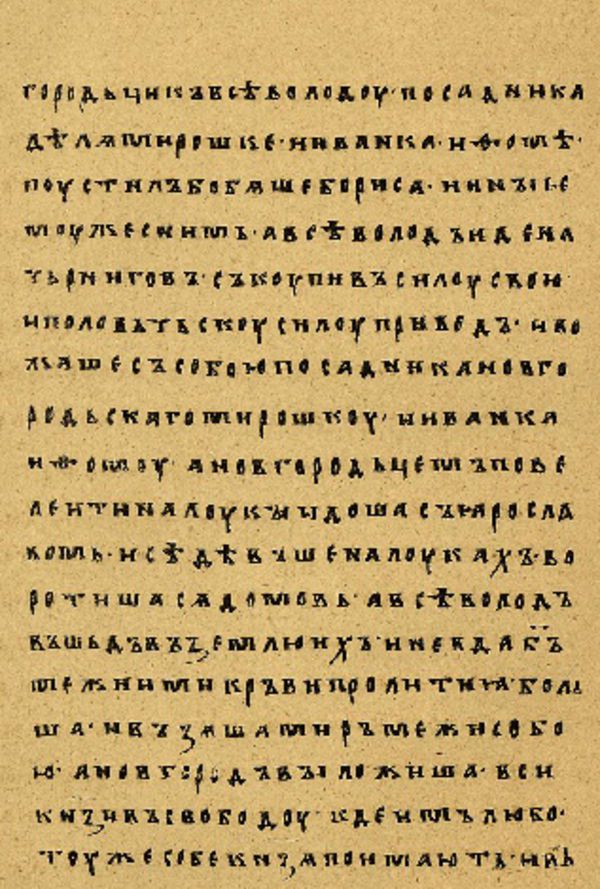 городьцикъ всѣволодоу· посадника
дѣлѧ мирошке· и иванка· и ѳомѣ·
поустилъ бо бѧше бориса· и инъı ѥ
моу же с нимь· а всѣволодъ иде на
чьрниговъ· съкоупивъ силоу свою
и половьтьскоу силоу приведъ· и во
жѧше съ собою посадника новго
родьскаго мирошкоу· и иванка
и ѳомоу· а новгородьцемъ пове
ле ити на лоукъı идоша съ ꙗросла
комь· и сѣдѣвъше на лоукахъ· во
ротишасѧ домовь· а всѣволодъ
въшьдъ въ землю ихъ· и не вда б҃ъ
межи ими кръви пролитиꙗ больˑ
ша· и възѧша миръ межи собо
ю· а новгородъ въıложиша· вси
кнѧзи въ свободоу· кде имъ любо·
тоу же собе кнѧзѧ поимають· и въ